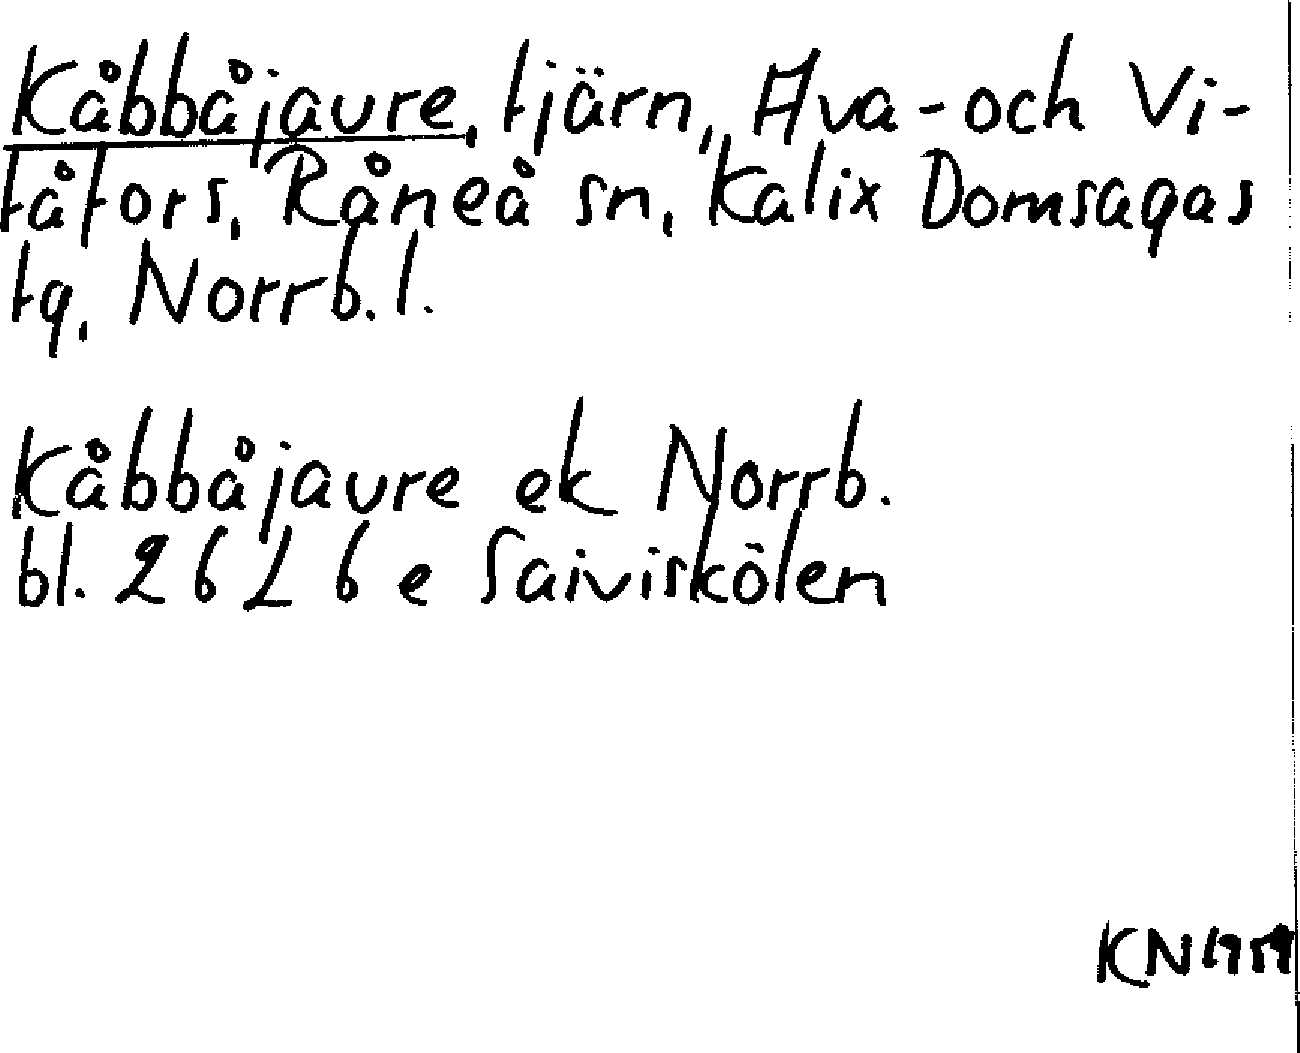 Kåbbåjaure, tjärn, Ava- och Vi-
tåfors, Råneå sn, Kalix Domsagas
tg, Norrb. l.
Kåbbåjaure ek Norrb.
bl. 26 L 6 e Saiviskölen
KN